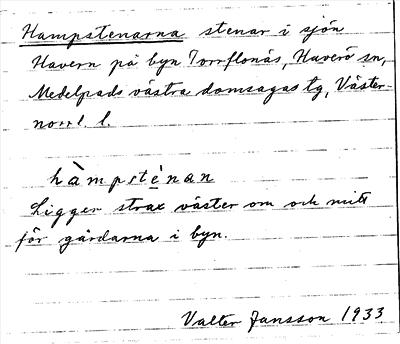 Hampstenarna stenar i sjön
Havern på byn Torrflonäs, Haverö sn,
Medelpads västra domsagas tg, Väster-
norrl. l.
hàmpstènan
Ligger strax väster om och mitt
för gårdarna i byn.
Valter Jansson 1933